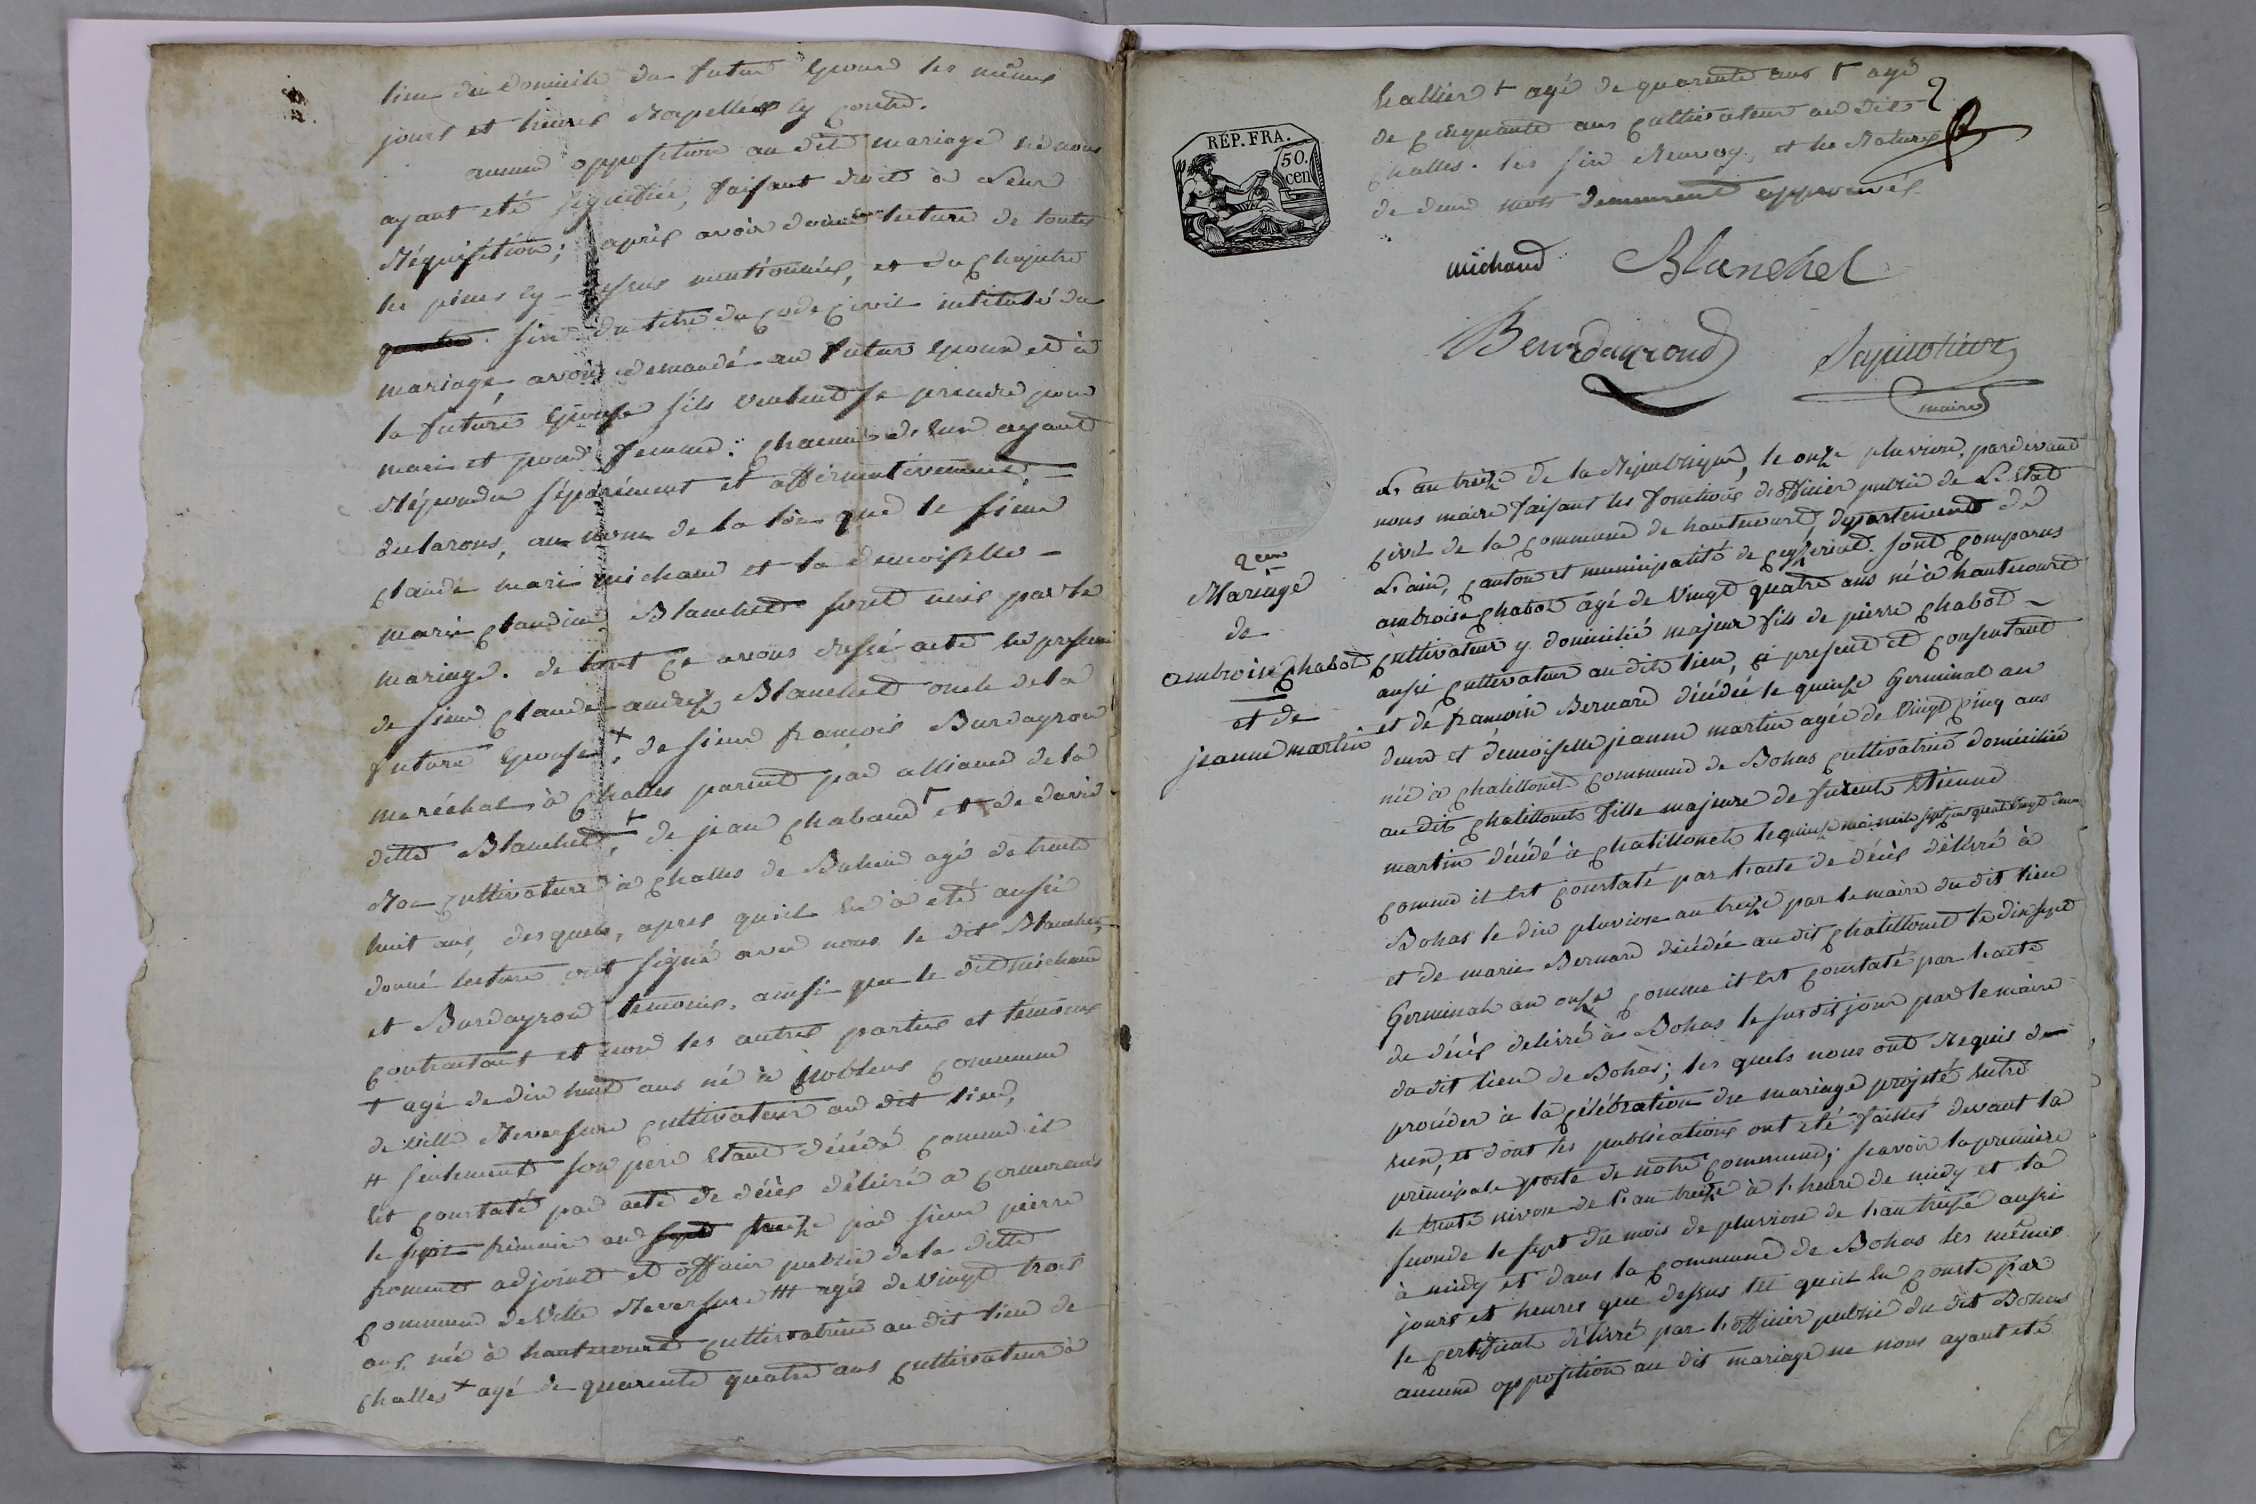 lieu du domicile du futur Epoux les mêmes
jours et heures Rapellées cy contre.
aucune opposition au dit mariage ne nous
ayant eté signifiée, faisant droit à Leur
Réquisition; après avoir donné lecture de toutes
les pièces cy-dessus mentionnées, et du chapitre
six du titre du code civil intitulé du
mariage, avons demandé au futur epoux et à
la future Epouse s'ils veulent se prendre pour
mari et pour femme: chacun d'eux ayant
Répondu séparément et affirmativement,
declarons, au nom de la loi que le sieur
claude mari michaud et la demoiselle
marie claudine Blanchet sont unis par le
mariage. de tout ce avons dressé acte en presence
de sieur claude andré Blanchet oncle de la
future Epouse +, de sieur françois Burdayron
maréchal à challes parent par alliance de la
ditte Blanchet, + de jean chabaud + et de david
Roc cultivateur à challes de Bohan agé de trente
huit ans, desquels, apres qu'il en a eté aussi
donné lecture ont signé avec nous le dit Blanchet,
et Burdayron temoins, ainsi que le dit michaud
contractant et non les autres parties et témoins
+ agé de dix huit ans né à commune
de ville Reversure cultivateur au dit lieu,
# seulement son pere Etant décédé comme il
Est constaté par acte de décès délivré a
le frimaire an treize par sieur pierre
froment adjoint et officier public de la ditte
commune de Ville Reversure ### agée de vingt trois
ans, née à hautecourt cultivatrice au dit lieu de
challes + agé de quarente quatre ans cultivateur à
hallier + agé de quarente ans + agé
de cinquante ans cultivateur au dit
challes. les six Renvoy, et les Rature
de deux mots demeurent approuvés.
2
RÉP. FRA.
50.
cen
michaud Blanchet
Burdayrond
maire
2eme
Mariage
de
ambroise chabod
et de
jeanne martin
L'an treize de la République, le onze pluviose, pardevant
nous maire faisant les fonctions d'officier public de L'Etat
civil de la commune de hautecourt, departement de
L'ain, canton et municipalité de ceyzeriat. sont comparus
ambroise chabod agé de Vingt quatre ans né à hautecourt
cultivateur y domicilié majeur fils de pierre chabod
aussi cultivateur au dit lieu, ci present et consentant
et de françoise Bernard décédée le quinze Germinal an
deux et demoiselle jeanne martin agée de Vingt cinq ans
née à chatillonet commune de Bohas cultivatrice domiciliée
au dit chatillonet fille majeure de furent Etienne
martin décédé à chatillonet le quinze mai mille sept cent quatre vingt deux
comme il est constaté par l'acte de décès délivré à
Bohas le dix pluviose an treize par le maire du dit lieu
et de marie Bernard décédée au dit chatillonet le dix sept
Germinal an onze comme il est constaté par l'acte
de décès delivré à Bohas le susdit jour par le maire
du dit lieu de Bohas; les quels nous ont Requis de
procéder à la célébration du mariage projeté entre
eux, et dont les publications ont eté faittes devant la
principale porte de notre commune; savoir la première
le trente nivose de l'an treize à l'heure de midy et la
seconde le sept du mois de pluviose de l'an treize aussi
à midy et dans la commune de Bohas les mêmes
jours et heures que dessus tel qu'il en conste par
le certificat délivré par l'officier public du dit Bohas
aucune opposition au dit mariage ne nous ayant eté